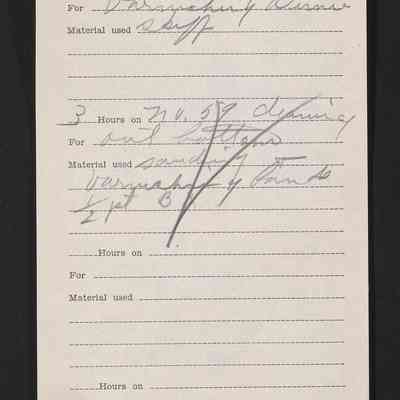 For Varnishing
Material used skiff
3 Hours on No. 59 cleaning
For out bottom
Material used sanding
Varnishing
1/2 pt B
Hours on
For
Material used
Hours on